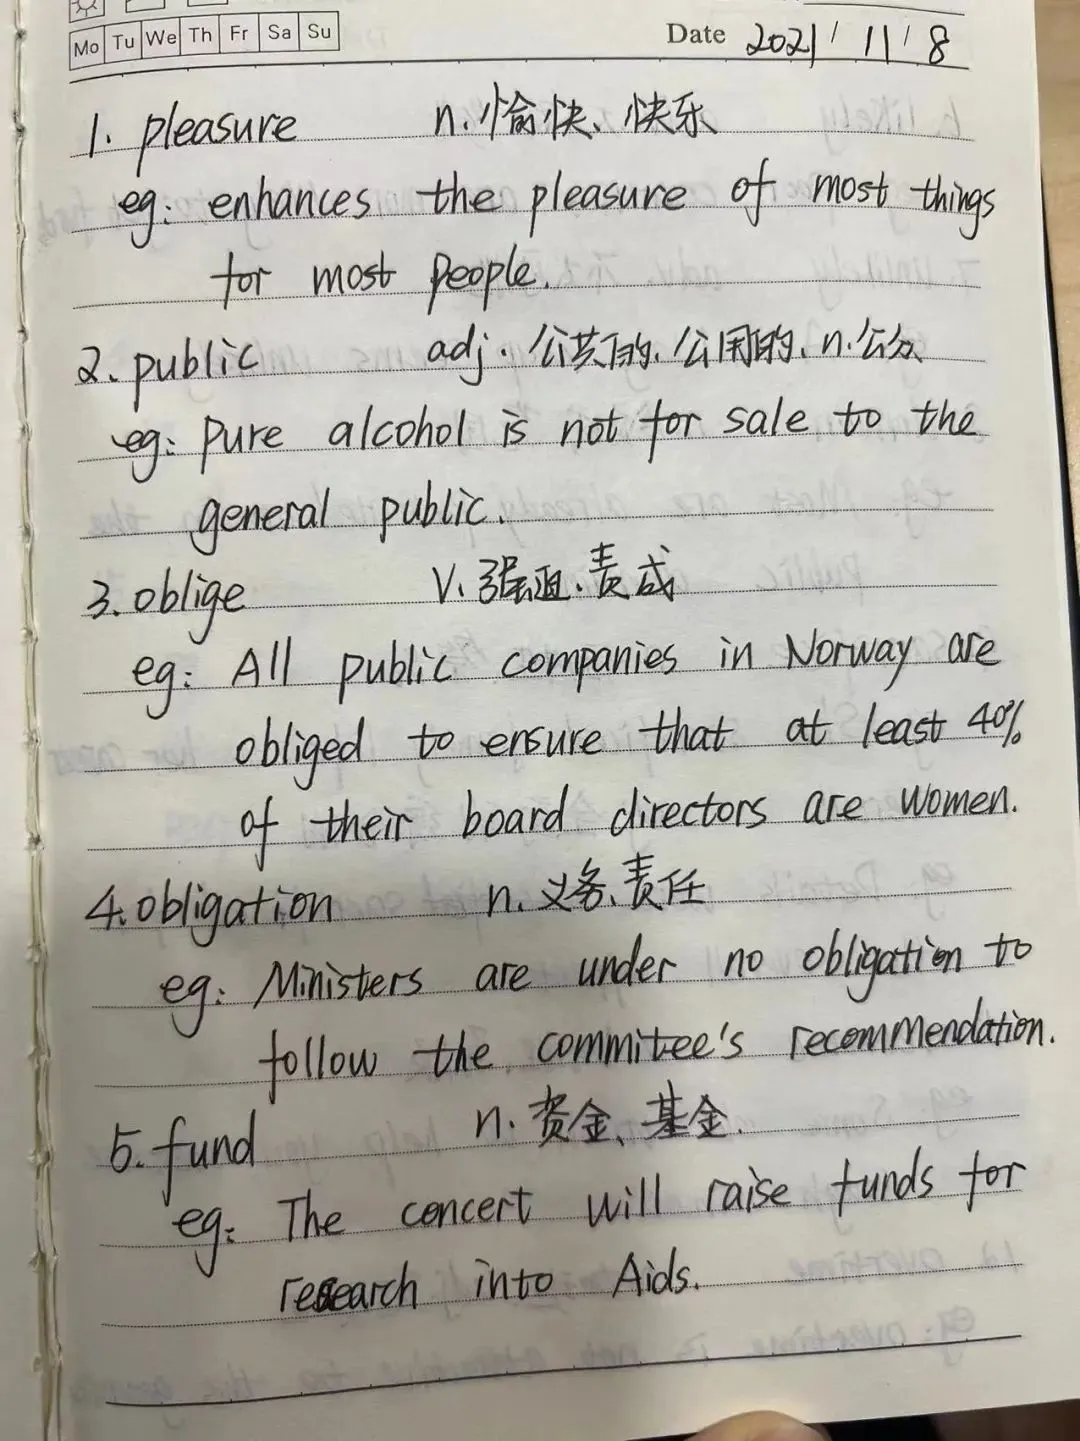 Mo Tu We Th Fr Sa Su
Date 2021 / 11 / 8
1. pleasure n. 愉快、快乐
eg: enhances the pleasure of most things
for most people.
2. public adj. 公共的、公用的、n. 公众
eg: pure alcohol is not for sale to the
general public.
3. oblige V. 强迫、责成
eg: All public companies in Norway are
obliged to ensure that at least 40%
of their board directors are women.
4. obligation n. 义务、责任
eg: Ministers are under no obligation to
follow the commitee's recommendation.
5. fund n. 资金、基金.
eg: The concert will raise funds for
research into Aids.